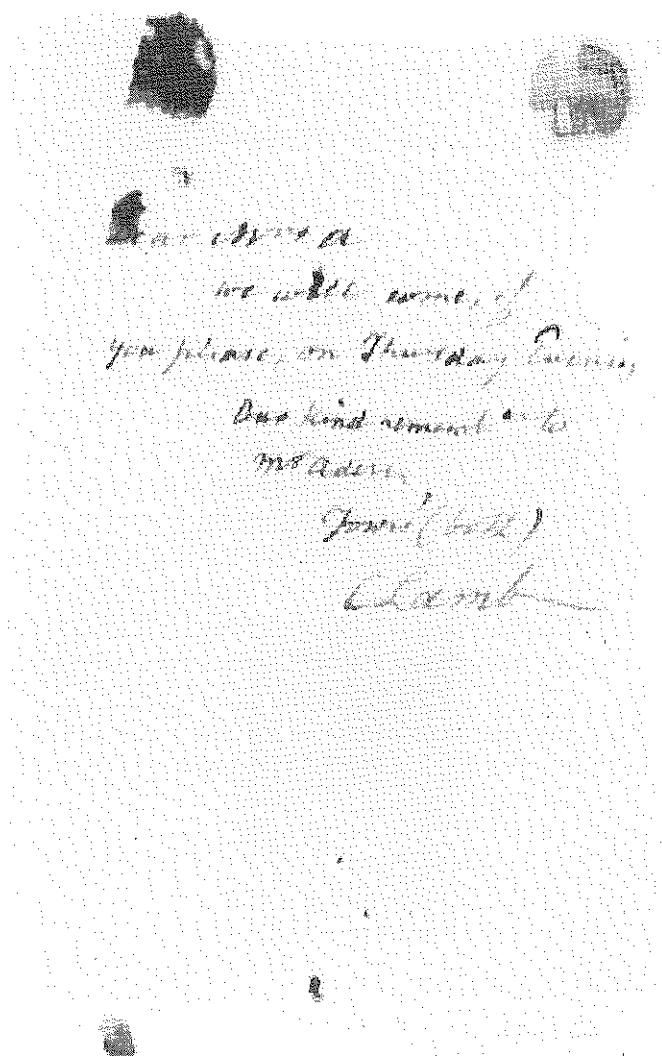 Dear Mrs A
we will come, if
you please, on Thursday Evening
Our kind rememb to
Mr Aders.
Yours (both)
C Lamb